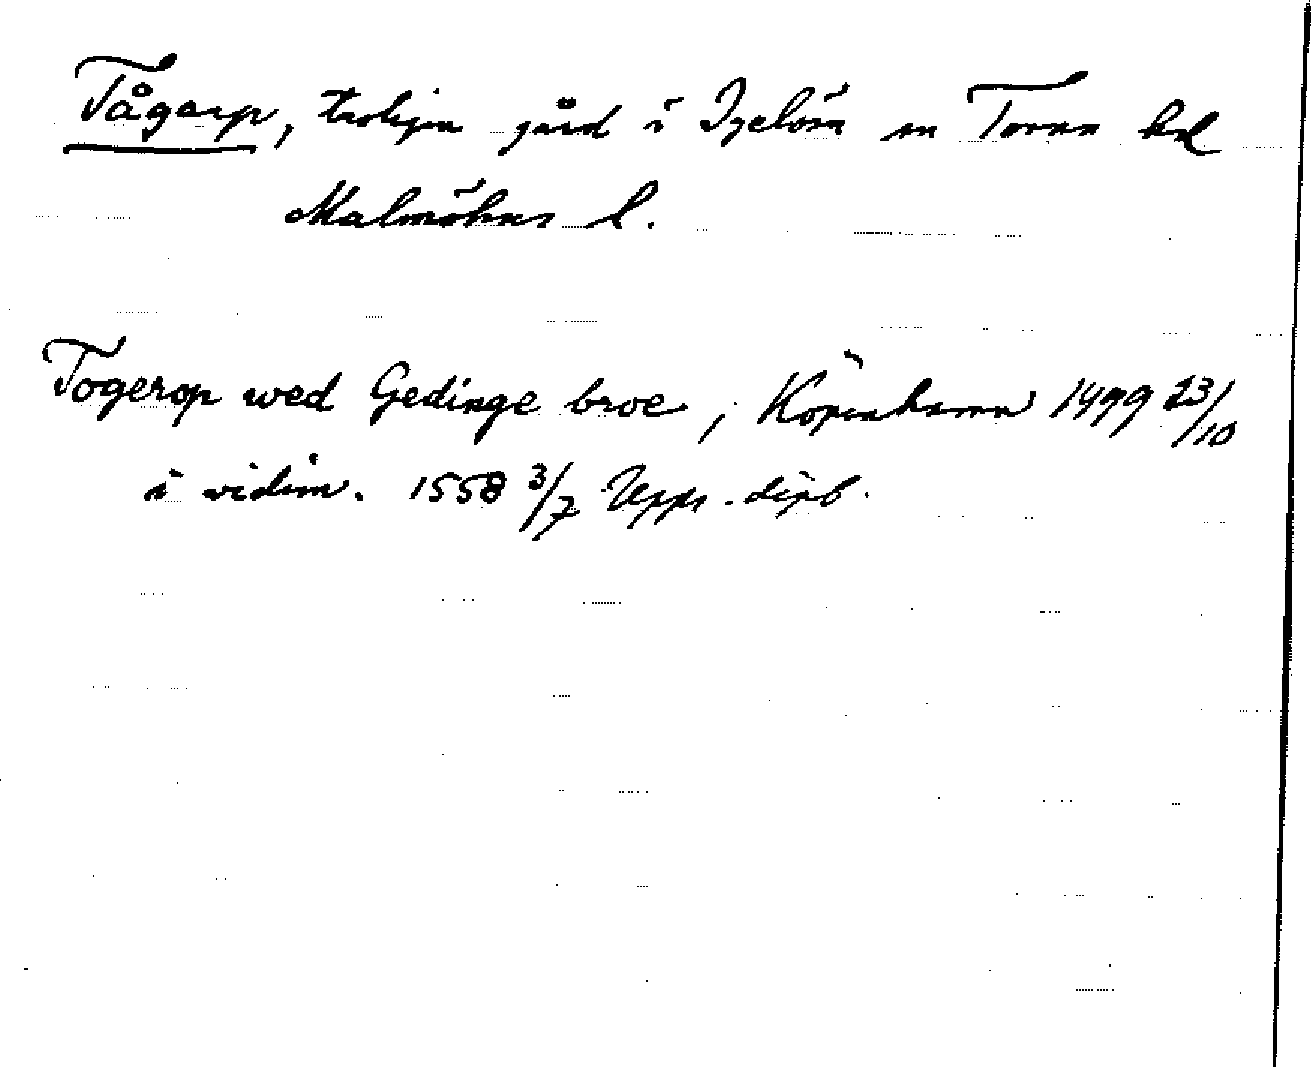 Tågarp, troligen gård i Igelösa sn Torna hd
Malmöhus l.
Togerop wed Gedinge broe, Köpenhamn 1499 23/10
i vidim. 1558 3/7 Upps. dipl.